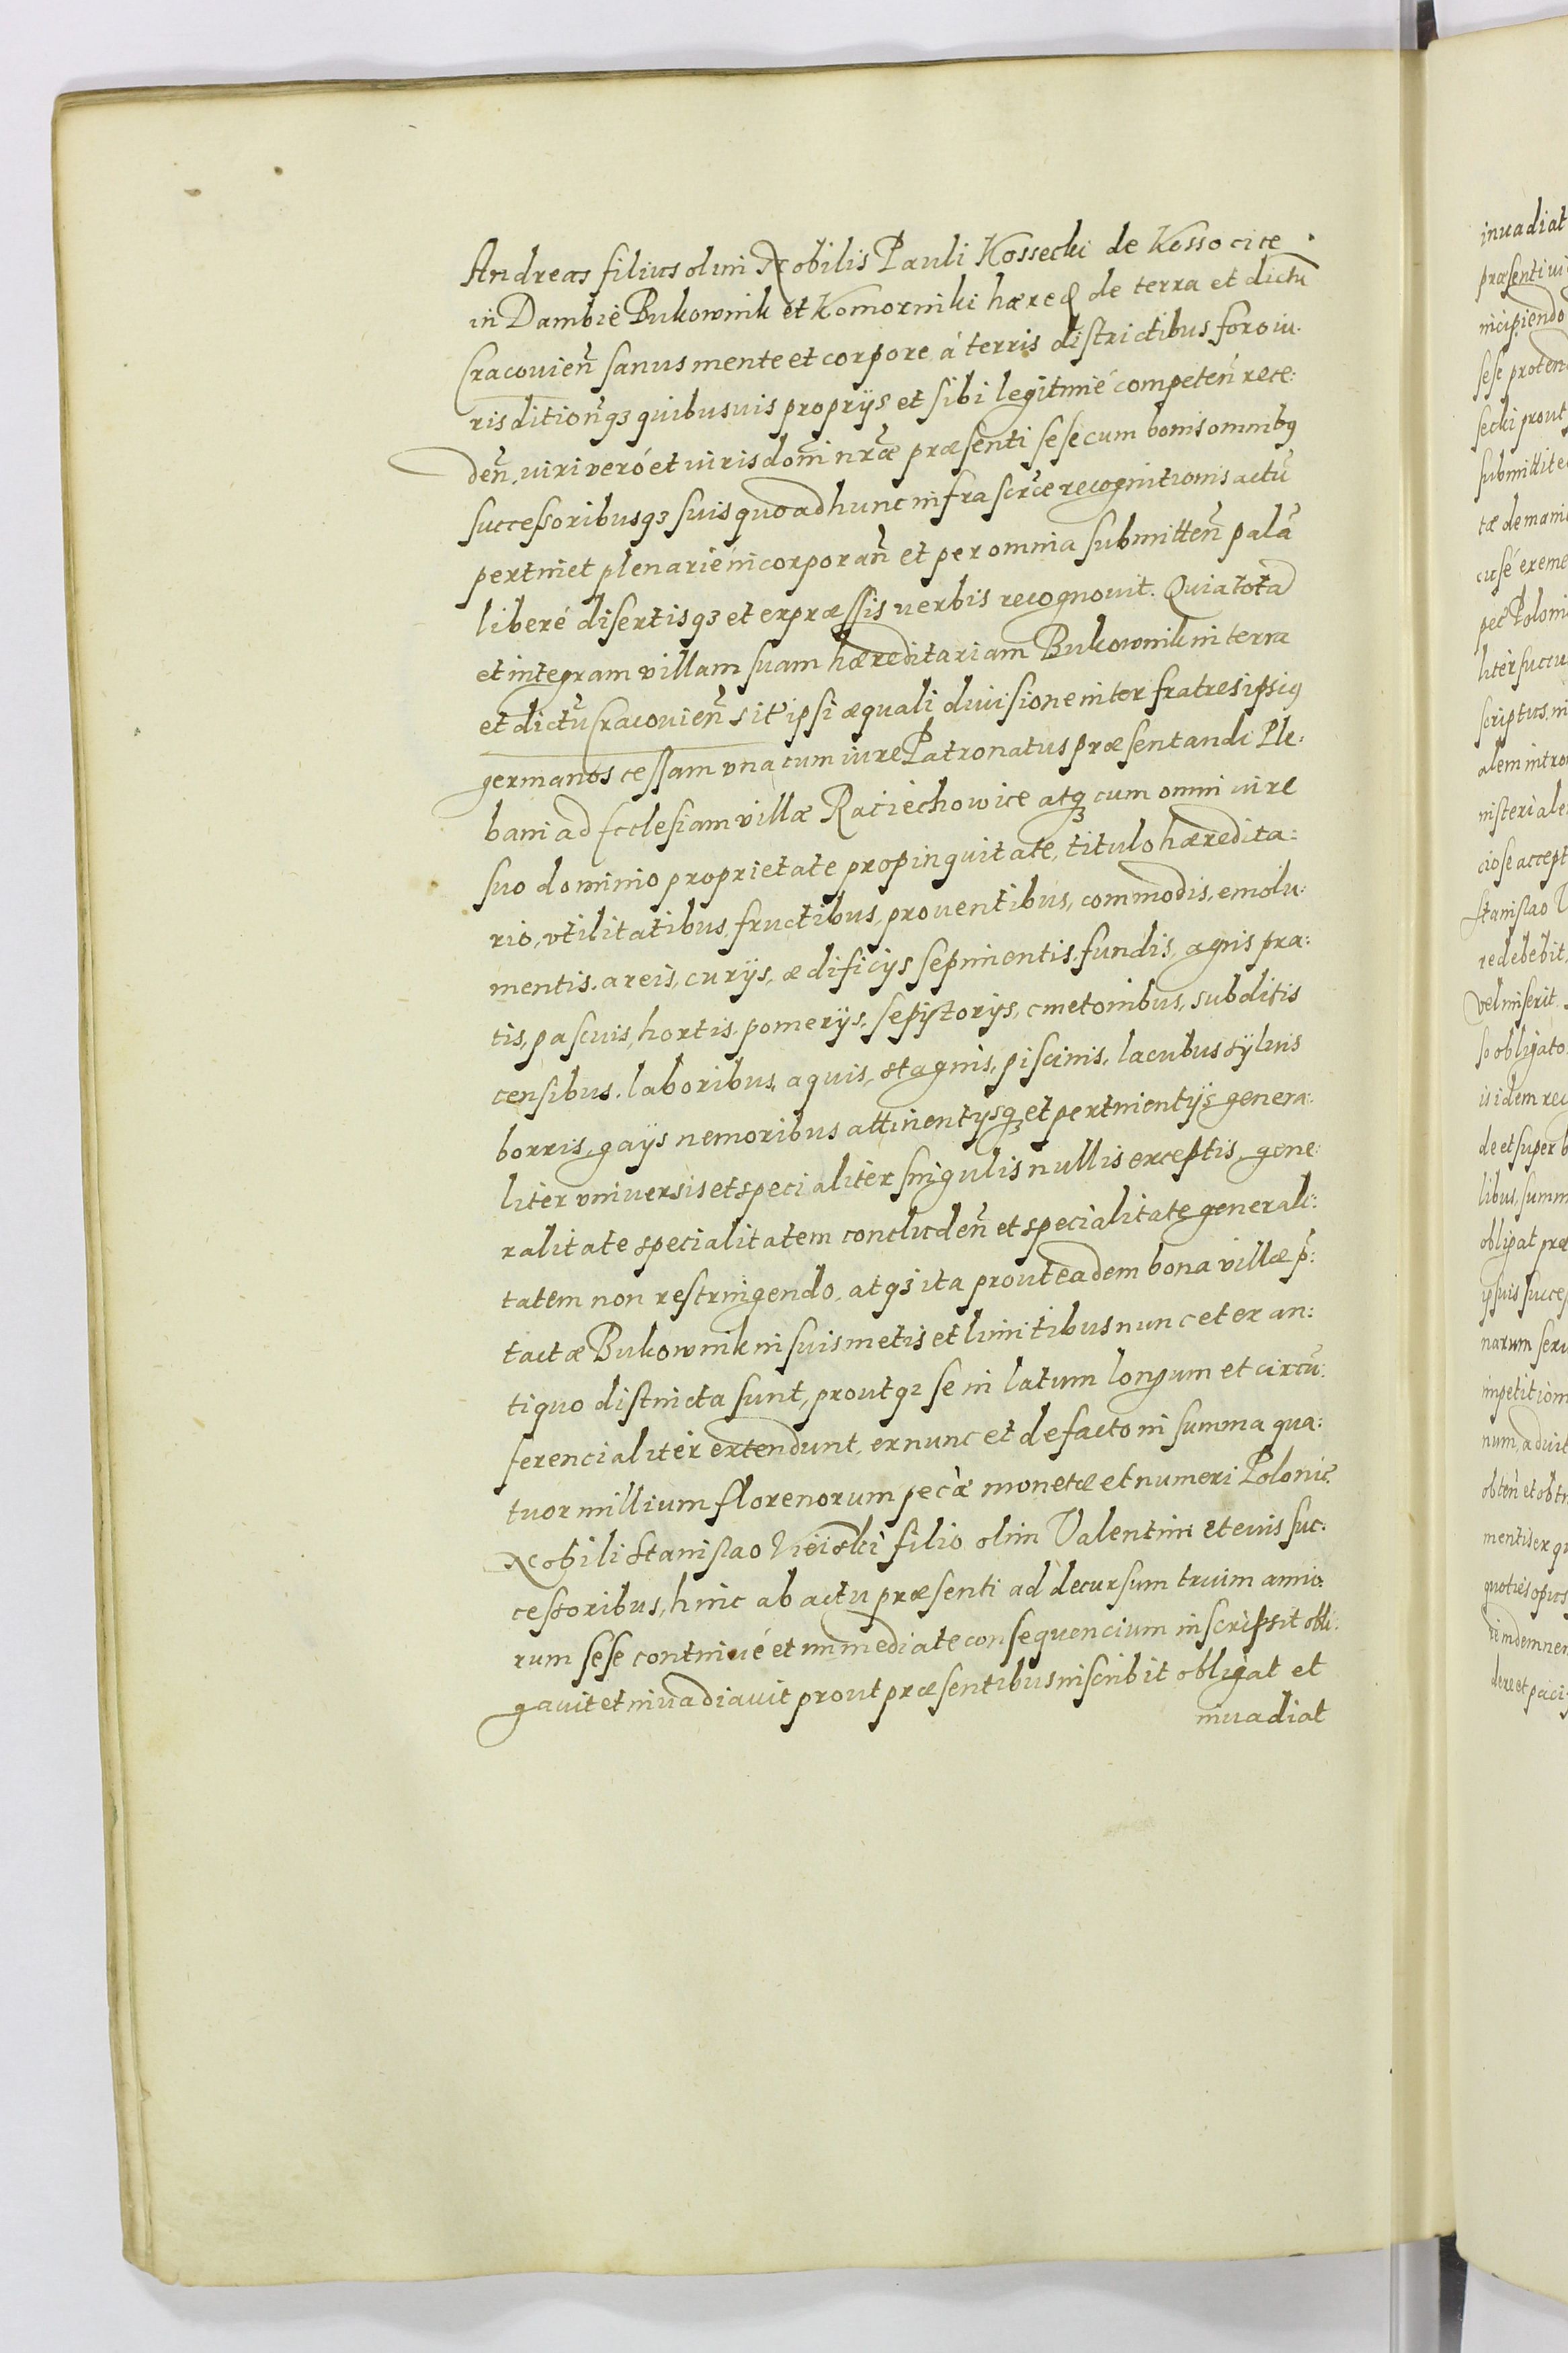 Andreas filius olim Nobilis Pauli Kossecki de Kossocice
in Dambie Bukownik et Komorniki hæreꝺ de terra et dictũ
Cracovien̄ sanus mente et corpore á terris districtibus foro iu-
risditionq₃ quibusuis proprijs et sibi legitimé competen̄ rece:
den̄, viri veró et iuris dom̄ n̄ræ præsenti sese cum bonis omnibꝰ
successoribusq₃ suis quoad hunc infrascr̄æ recognitionis actũ
pertinet plenarié incorporan̄ et per omnia submitten̄ palã
liberé disertisq₃ et expræssis verbis recognouit. Quia totã
et integram villam suam hæreditariam Bukownik in terra
et dictũ Cracovien̄ sit' ipsi æquali diuisione inter fratres ipsiꝰ
germanos cessam vna cum iure Patronatus præsentandi Ple:
bani ad Ecclesiam villæ Raciechowice atq₃ cum omni iure
suo dominio proprietate propinquitate, titulo hæredita:
rio, vtilitatibus, fructibus, prouentibus, commodis, emolu:
mentis, areis, curijs, ædificijs sepimentis, fundis, agris pra:
tis, pascuis, hortis, pomerijs, cmetonibus, subditis
censibus, laboribus, aquis, stagnis, piscinis, lacubus sÿluis
borris, gaijs nemoribus attinentijsq₃ et pertinentijs genera:
liter vniuersis et specialiter singulis nullis exceptis, gene:
ralitate specialitatem concluden̄ et specialitate generali:
tatem non restringendo, atq₃ ita prout eadem bona villæ p̄:
tactæ Bukownik in suis metis et limitibus nunc et ex an:
tiquo distincta sunt, proutq₃ se in latum longum et circũ:
ferencialiter extendunt, ex nunc et de facto in summa qua:
tuor millium florenorum pec̄æ monetæ et numeri Polonic̄
Nobili Stanislao filio olim Valentini et eius suc:
cessoribus, hinc ab actu præsenti ad decursum trium anno:
rum sese continué et immediate consequencium inscripsit obli:
gauit et inuadiauit prout præsentibus inscribit obligat et
inuadiat
inuadiat
incipiendo
secki prout
libus, summ
obligat præ
narum
num, aduit
mentis ex
quoties opus